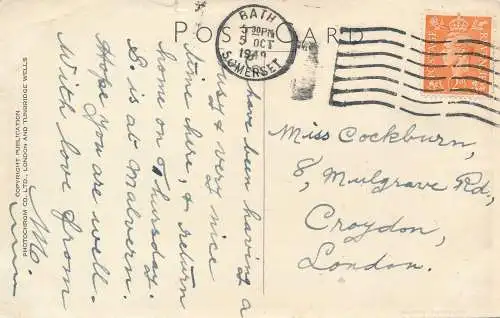 POST CARD
BATH
5 30 PM
5 OCT
1949
SOMERSET
have been having a
busy & very nice
time here, & return
home on Thursday.
S. is at Malvern.
Hope you are well.
With love from
M.
Miss Cockburn,
8, Mulgrave Rd.,
Croydon,
London.
COPYRIGHT PUBLICATION
PHOTOCHROM CO., LTD., LONDON AND TUNBRIDGE WELLS